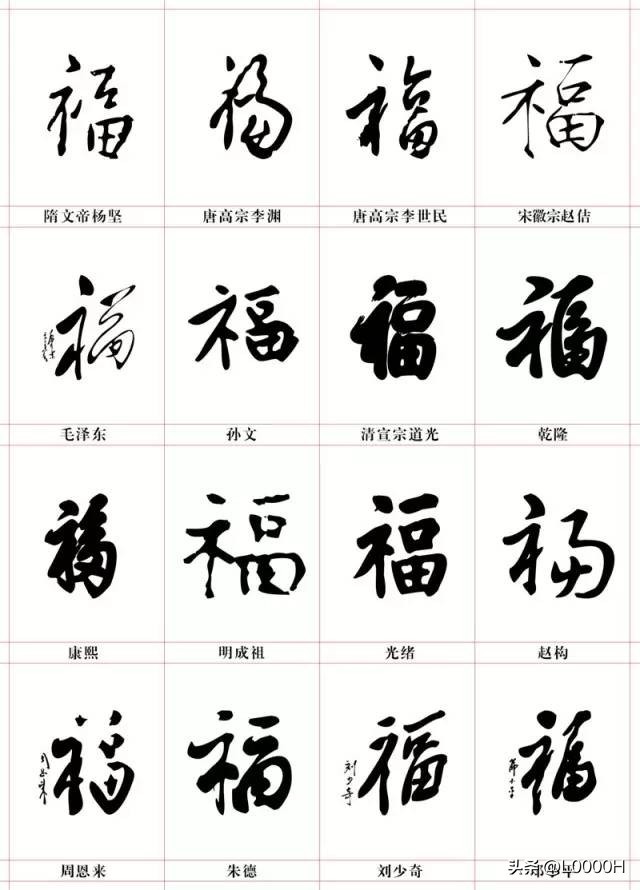 福 福 福 福
隋文帝杨坚 唐高宗李渊 唐高宗李世民 宋徽宗赵佶
福 福 福 福
毛泽东 孙文 清宣宗道光 乾隆
福 福 福 福
康熙 明成祖 光绪 赵构
福 福 福 福
周恩来
刘少奇
周恩来 朱德 刘少奇
头条@L0000H